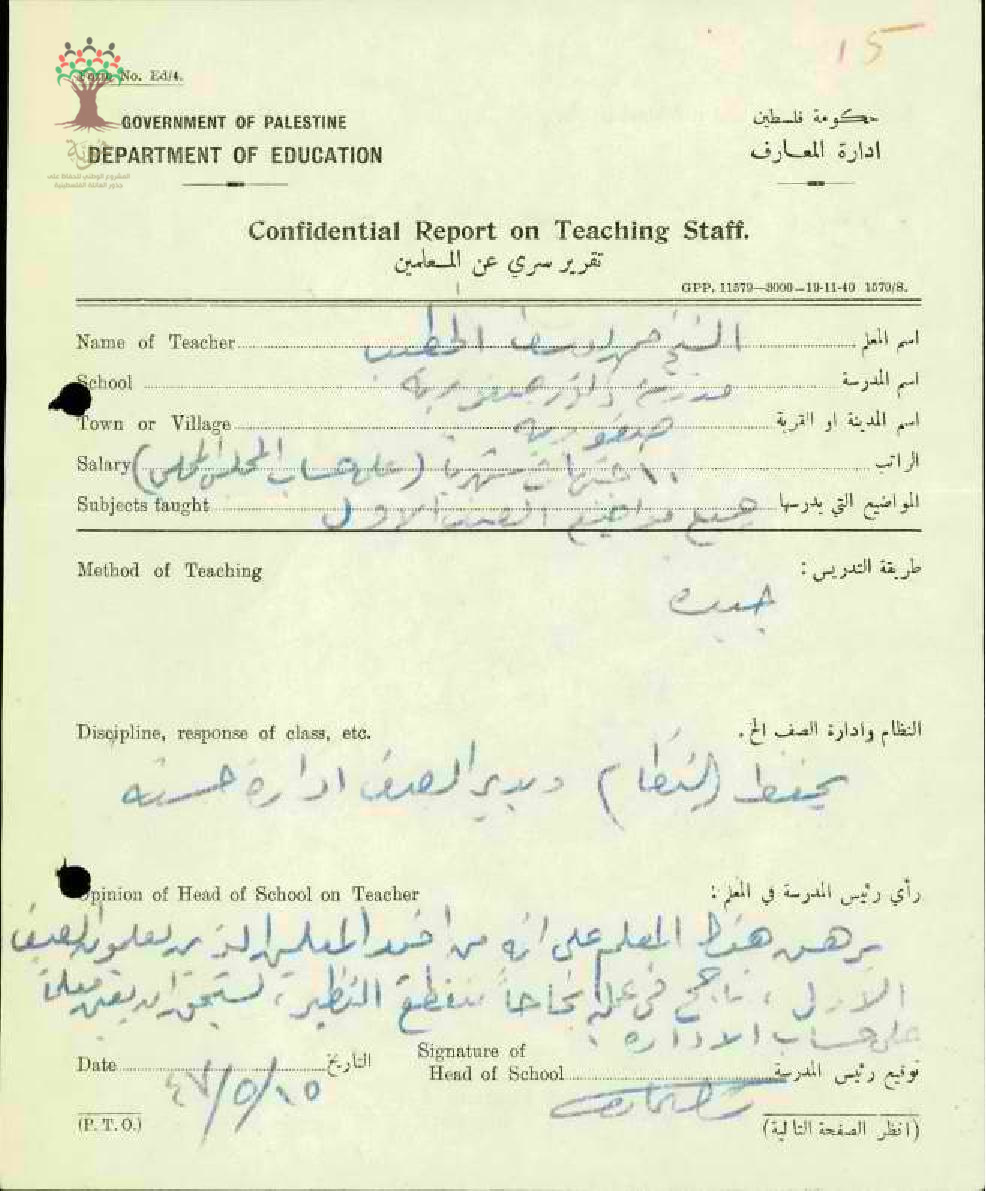 15
Form No. Ed/4.
GOVERNMENT OF PALESTINE
حكومة فلسطين
DEPARTMENT OF EDUCATION
ادارة المعارف
المشروع الوطني للحفاظ على
جذور العائلة الفلسطينية
Confidential Report on Teaching Staff.
تقرير سري عن المعلمين
GPP. 11579—3000—19-11-40 1570/S.
Name of Teacher الشيخ محمد يوسف الخطيب اسم المعلم
School مدرسة ذكور صفورية اسم المدرسة
Town or Village صفورية اسم المدينة او القرية
Salary ١٠ جنيهات شهريا (على حساب المجلس المحلي) الراتب
Subjects taught جميع مواضيع الصف الاول المواضيع التي يدرسها
Method of Teaching طريقة التدريس:
جيدة
Discipline, response of class, etc. النظام وادارة الصف الخ.
يحفظ النظام ويدير الصف ادارة حسنة
Opinion of Head of School on Teacher رأي رئيس المدرسة في المعلم:
برهن هذا المعلم على انه من المعلمين الذين يعلمون الصف
الاول، ناجح في عمله نجاحاً منقطع النظير، يستحق ان يعين معلماً
على حساب الادارة.
Date ١٥/٥/٤٧ التاريخ
Signature of
Head of School توقيع رئيس المدرسة
(P. T. O.) (انظر الصفحة التالية)